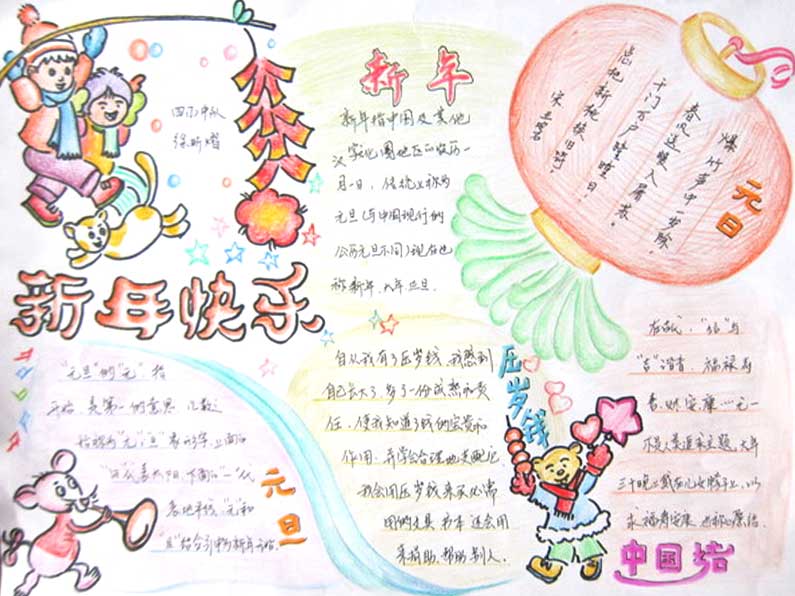 新年快乐
四(5)中队
新年
新年指中国及其他
汉字文化圈地区的农历一
月一日，传统上称为
元旦(与中国现行的
公历元旦不同)现在也
称新年、大年、正旦。
元日
爆竹声中一岁除，
春风送暖入屠苏。
千门万户曈曈日，
总把新桃换旧符。
宋 王安石
"元旦"的"元"指
开始，是第一的意思
上面的
"日"代表太阳，下面的"一"代
表地平线，"元"和
"旦"结合引申为新年开始。
元旦
压岁钱
自从我有了压岁钱，我感到
自己长大了，多了一份成熟和责
任，使我知道了钱的宝贵和
作用，并学会合理地支配它
我会用压岁钱来买必需
用的文具 书本 还会用
来捐助、帮助别人。
"吉"谐音，福禄寿
喜、财、安康
不是人类追求主题，大年
三十晚上
求福寿安康
中国结